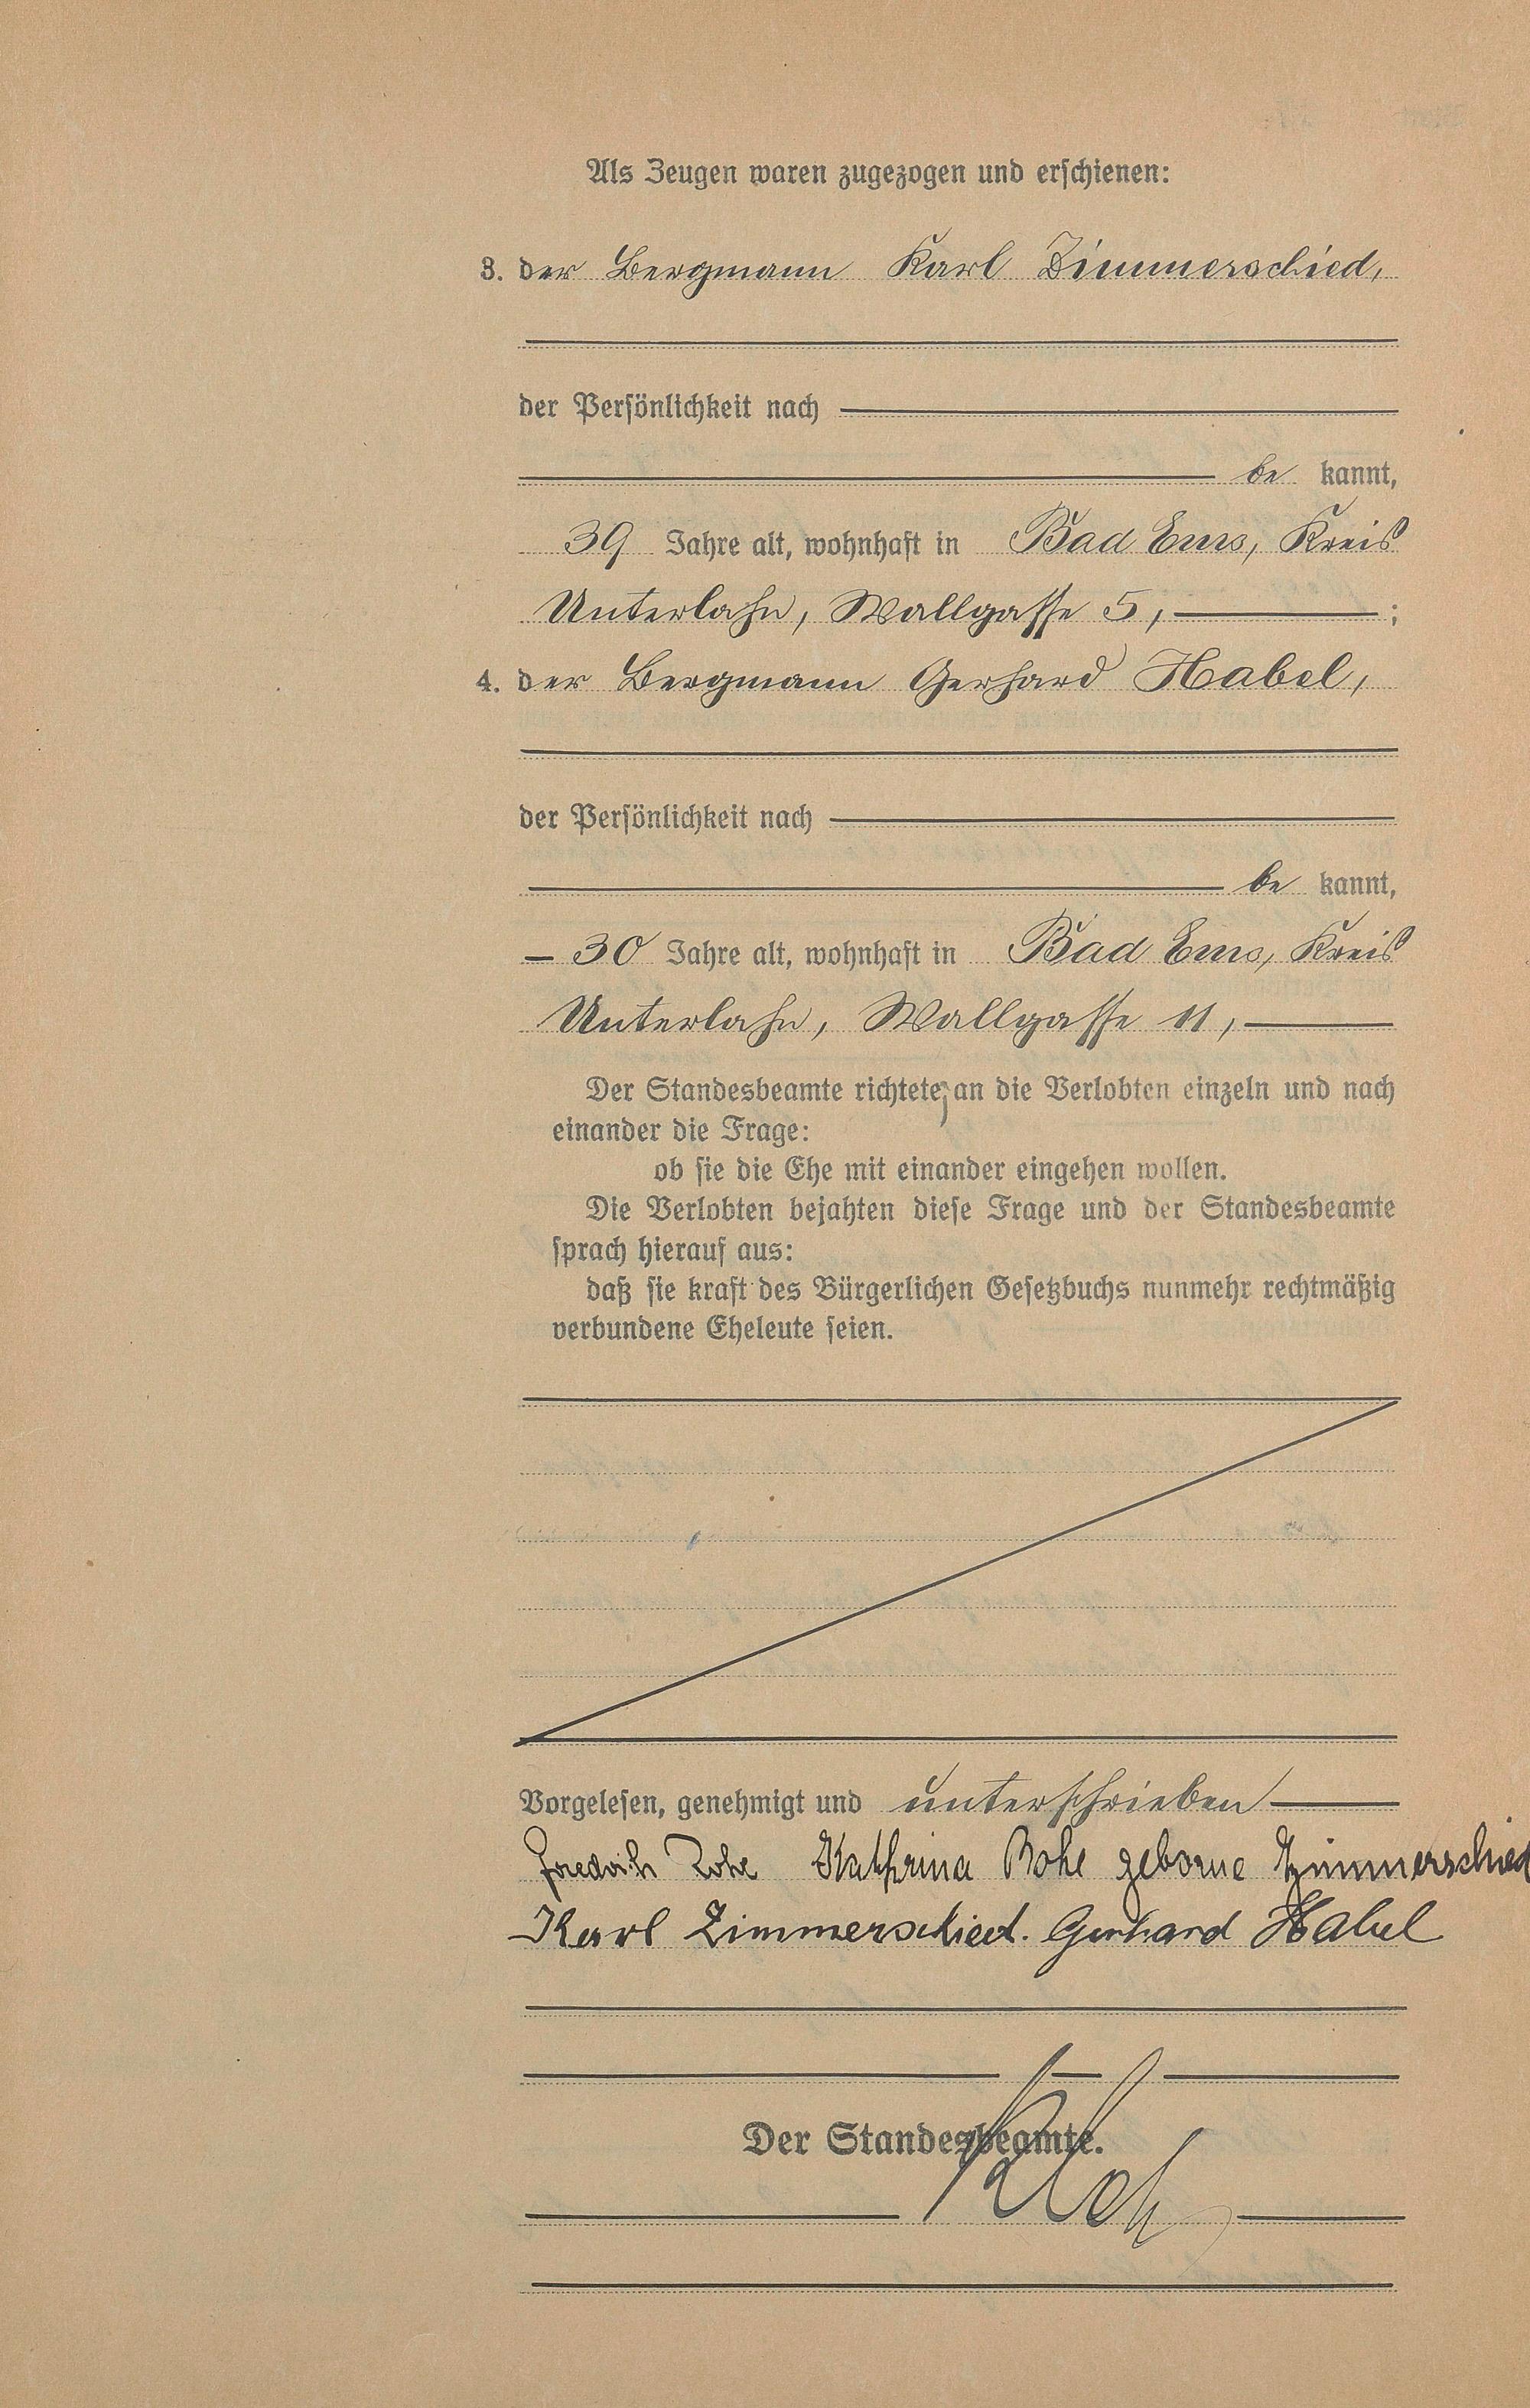 Als Zeugen waren zugezogen und erschienen:
3. der Bergmann Karl Zimmerschied,
der Persönlichkeit nach
be kannt,
39 Jahre alt, wohnhaft in Bad Ems, Kreis
Unterlahn, Wallgasse 5, ;
4. der Bergmann Gerhard Habel,
der Persönlichkeit nach
be kannt,
30 Jahre alt, wohnhaft in Bad Ems, Kreis
Unterlahn, Wallgasse 11,
Der Standesbeamte richtete an die Verlobten einzeln und nach
einander die Frage:
ob sie die Ehe mit einander eingehen wollen.
Die Verlobten bejahten diese Frage und der Standesbeamte
sprach hierauf aus:
daß sie kraft des Bürgerlichen Gesetzbuchs nunmehr rechtmäßig
verbundene Eheleute seien.
Vorgelesen, genehmigt und unterschrieben
Friedrich Rohe Kathrina Rohe geborne Zimmerschied
Karl Zimmerschied. Gerhard Habel
Der Standesbeamte.